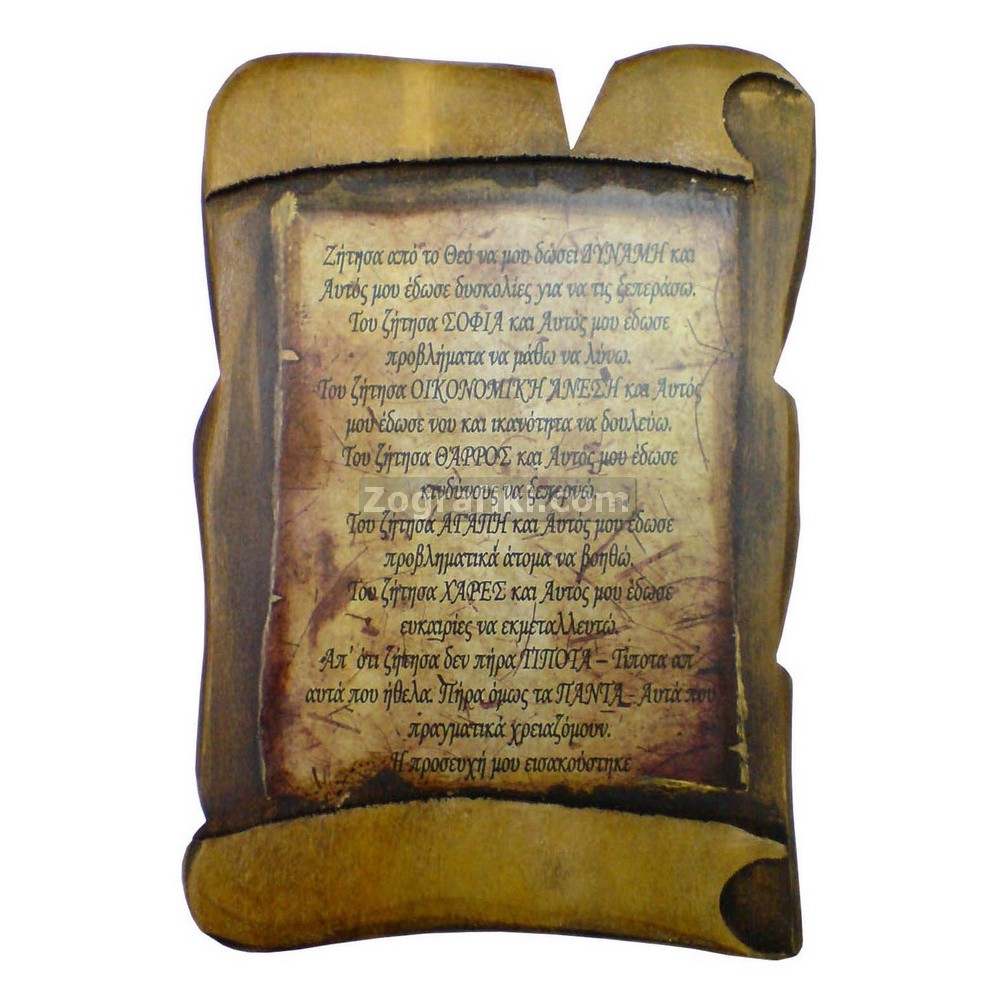 Ζήτησα από το Θεό να μου δώσει ΔΥΝΑΜΗ και
Αυτός μου έδωσε δυσκολίες για να τις ξεπεράσω.
Του ζήτησα ΣΟΦΙΑ και Αυτός μου έδωσε
προβλήματα να μάθω να λύνω.
Του ζήτησα ΟΙΚΟΝΟΜΙΚΗ ΑΝΕΣΗ και Αυτός
μου έδωσε νου και ικανότητα να δουλεύω.
Του ζήτησα ΘΑΡΡΟΣ και Αυτός μου έδωσε
κινδύνους να ξεπερνώ.
Zografiki.com
Του ζήτησα ΑΓΑΠΗ και Αυτός μου έδωσε
προβληματικά άτομα να βοηθώ.
Του ζήτησα ΧΑΡΕΣ και Αυτός μου έδωσε
ευκαιρίες να εκμεταλλευτώ.
Απ' ότι ζήτησα δεν πήρα ΤΙΠΟΤΑ – Τίποτα απ'
αυτά που ήθελα. Πήρα όμως τα ΠΑΝΤΑ – Αυτά που
πραγματικά χρειαζόμουν.
Η προσευχή μου εισακούστηκε